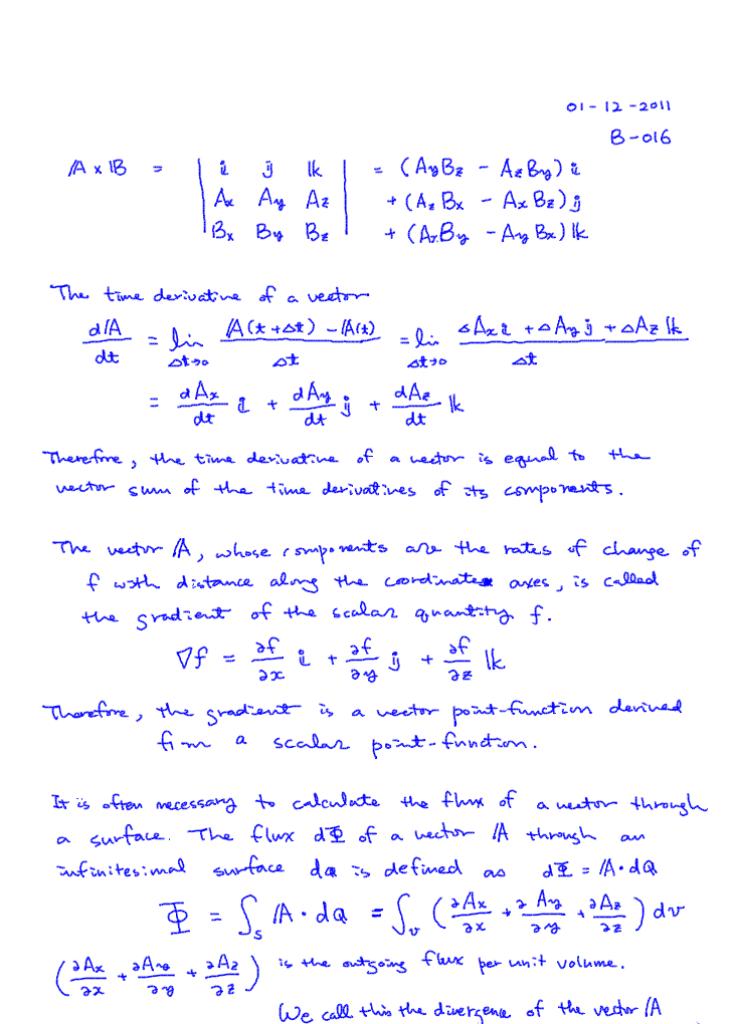 01-12-2011
B-016
𝔸 × 𝔹 = | 𝕚 𝕛 𝕜 | = (AyBz - AzBy) 𝕚
| Ax Ay Az | + (AzBx - AxBz) 𝕛
| Bx By Bz | + (AxBy - AyBx) 𝕜
The time derivative of a vector
d𝔸/dt = lim Δt→0 (𝔸(t+Δt) - 𝔸(t))/Δt = lim Δt→0 (ΔAx 𝕚 + ΔAy 𝕛 + ΔAz 𝕜)/Δt
= dAx/dt 𝕚 + dAy/dt 𝕛 + dAz/dt 𝕜
Therefore, the time derivative of a vector is equal to the
vector sum of the time derivatives of its components.
The vector 𝔸, whose components are the rates of change of
f with distance along the coordinate axes, is called
the gradient of the scalar quantity f.
∇f = ∂f/∂x 𝕚 + ∂f/∂y 𝕛 + ∂f/∂z 𝕜
Therefore, the gradient is a vector point-function derived
from a scalar point-function.
It is often necessary to calculate the flux of a vector through
a surface. The flux dΦ of a vector 𝔸 through an
infinitesimal surface d𝕒 is defined as dΦ = 𝔸·d𝕒
Φ = ∫s 𝔸·d𝕒 = ∫v (∂Ax/∂x + ∂Ay/∂y + ∂Az/∂z) dv
(∂Ax/∂x + ∂Ay/∂y + ∂Az/∂z) is the outgoing flux per unit volume.
We call this the divergence of the vector 𝔸